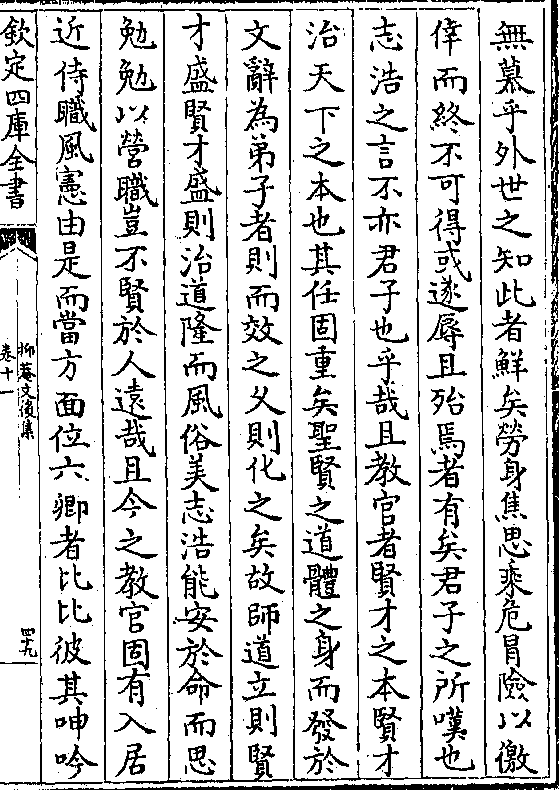 無慕乎外世之知此者鮮矣勞身焦思乘危冒險以徼
倖而終不可得或遂辱且殆焉者有矣君子之所嘆也
志浩之言不亦君子也乎哉且教官者賢才之本賢才
治天下之本也其任固重矣聖賢之道體之身而發於
文辭為弟子者則而效之乆則化之矣故師道立則賢
才盛賢才盛則治道隆而風俗美志浩能安於命而思
勉勉以營職豈不賢於人遠哉且今之教官固有入居
近侍職風憲由是而當方面位六卿者比比彼其呻吟
欽定四庫全書
抑菴文後集
卷十一
四十九